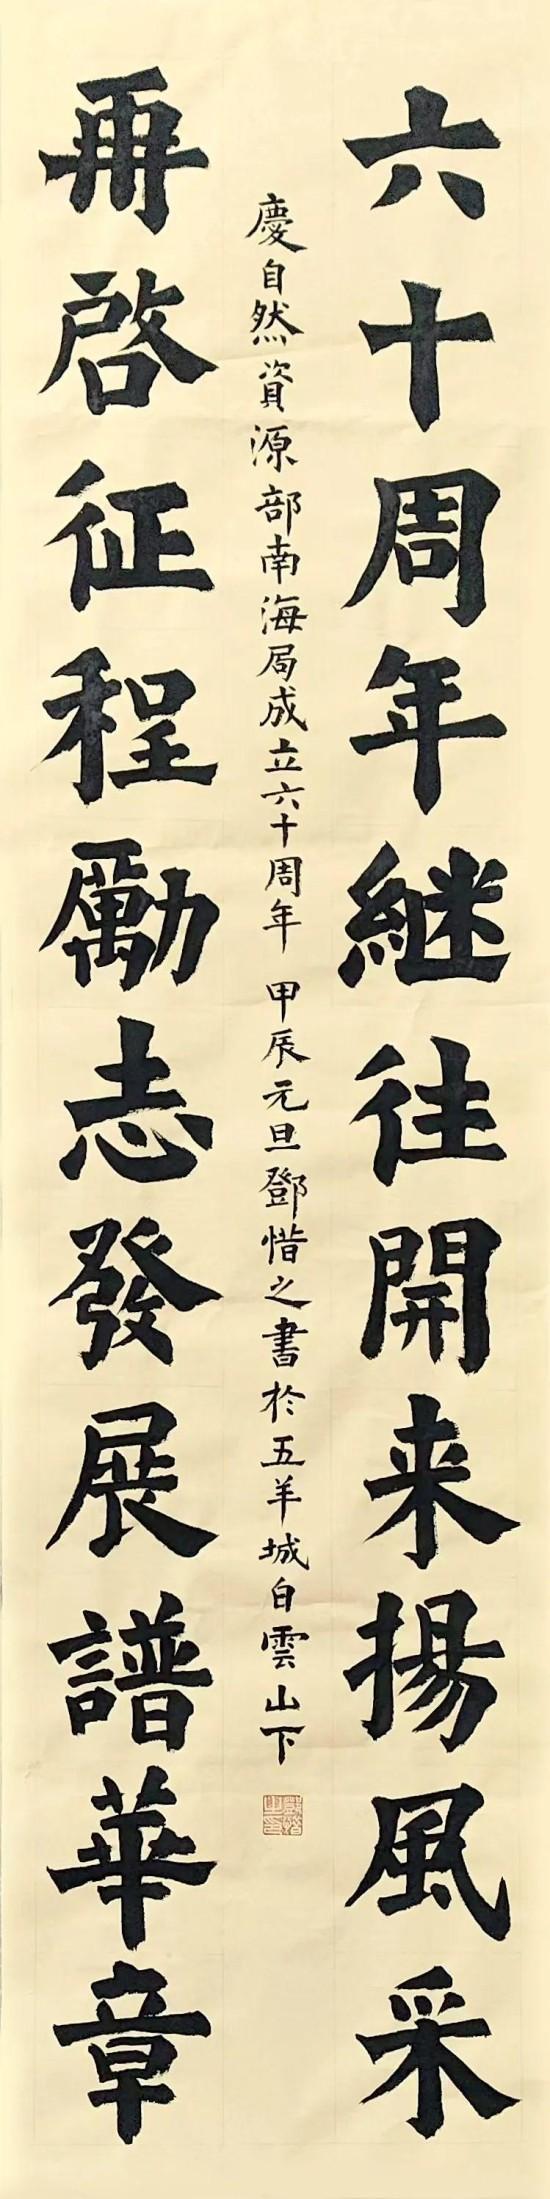 六十周年継往開来揚風采
慶自然資源部南海局成立六十周年 甲辰元旦鄧惜之書於五羊城白雲山下
再啓征程勵志發展譜華章